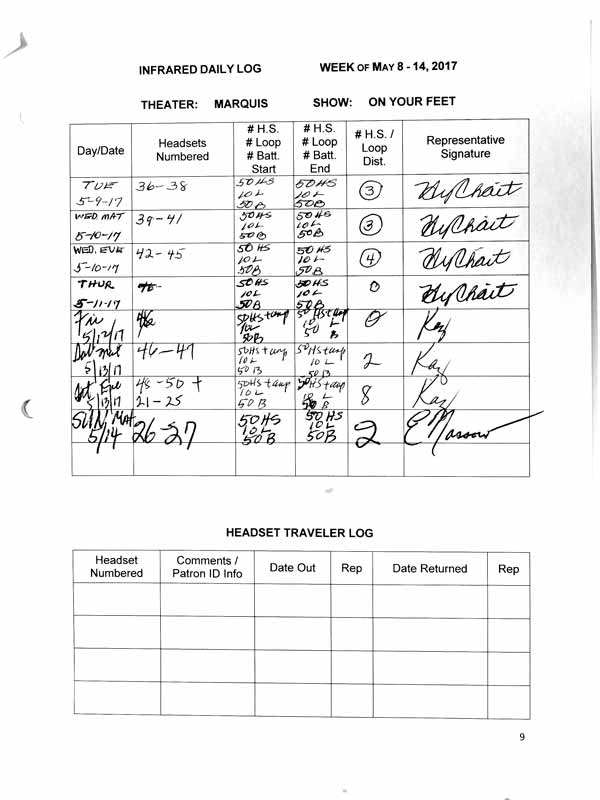 INFRARED DAILY LOG WEEK OF MAY 8 - 14, 2017
THEATER: MARQUIS SHOW: ON YOUR FEET
Day/Date Headsets Numbered # H.S. # Loop # Batt. Start # H.S. # Loop # Batt. End # H.S. / Loop Dist. Representative Signature
TUE 5-9-17 36-38 50HS 10L 50B 50HS 10L 50B 3
WED MAT 5-10-17 39-41 50HS 10L 50B 50HS 10L 50B 3
WED. EVE 5-10-17 42-45 50HS 10L 50B 50HS 10L 50B 4
THUR 5-11-17 50HS 10L 50B 50HS 10L 50B 0
Fri 5/12/17 50HS+amp 50B 50HS+amp 10 L 50 B 0 Kay
Sat mat 5/13/17 46-47 50HS+amp 10L 50B 50HS+amp 10L 50B 2 Kay
Sat Eve 5/13/17 48-50 + 21-25 50HS+amp 10L 50B 50HS+amp 10 L 50 B 8 Kay
SUN MAT 5/14 26-27 50HS 10L 50B 50HS 10L 50B 2
HEADSET TRAVELER LOG
Headset Numbered Comments / Patron ID Info Date Out Rep Date Returned Rep
9